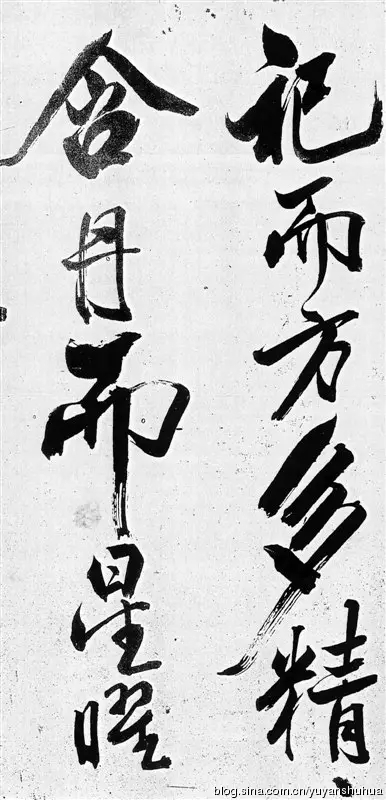 祀而方多精
含丹而星曜
blog.sina.com.cn/yuyanshuhua